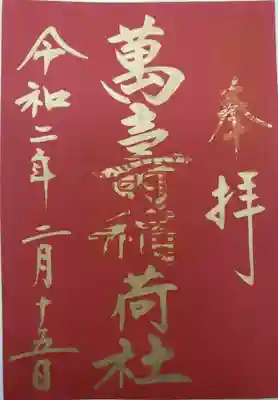 奉拝
萬壽稲荷社
令和二年 二月十五日